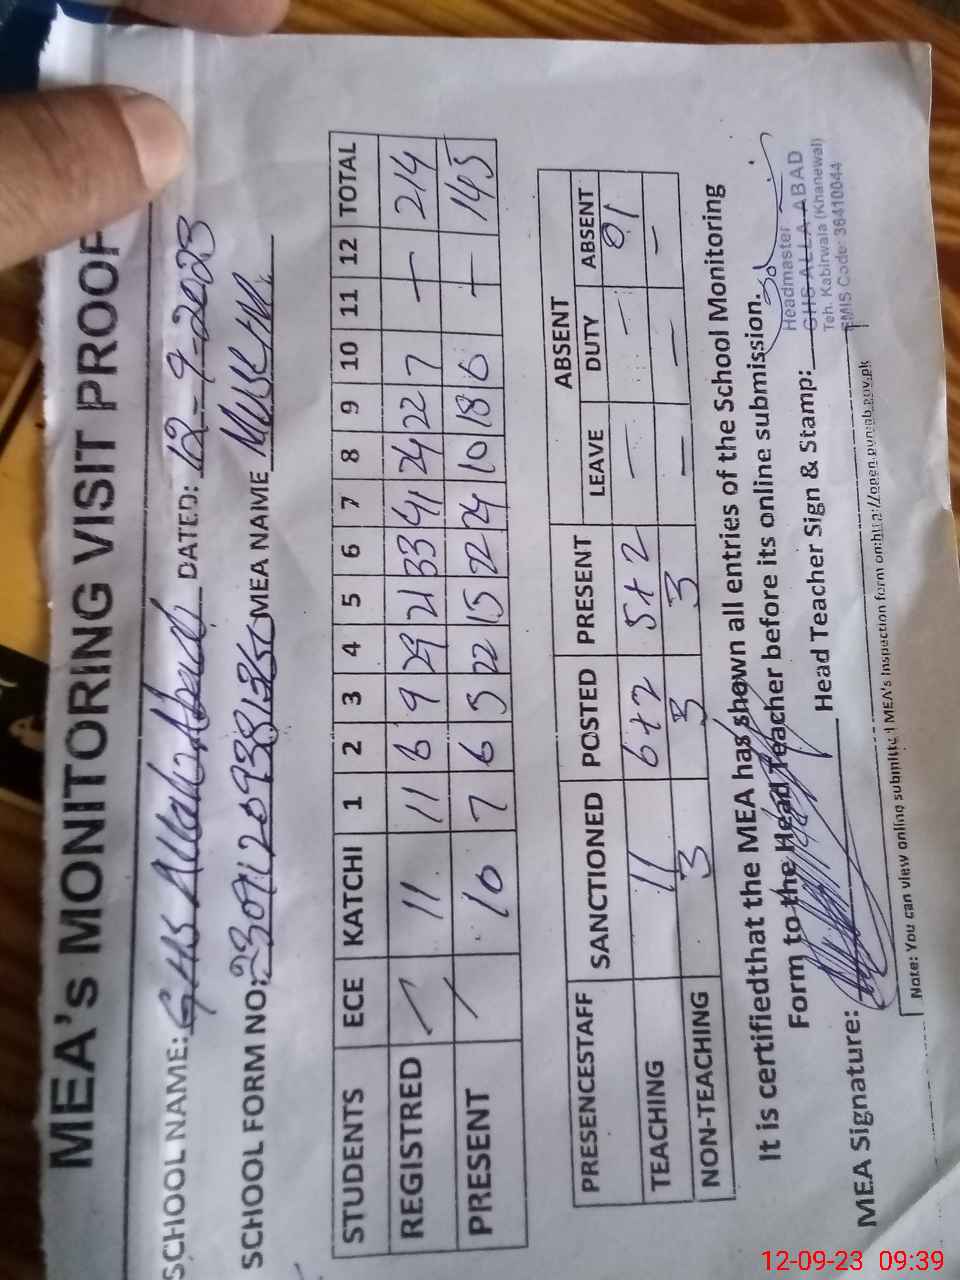 MEA's MONITORING VISIT PROOF
SCHOOL NAME: GHS Allaha Abad DATED: 12-9-2023
SCHOOL FORM NO: MEA NAME
STUDENTS ECE KATCHI 1 2 3 4 5 6 7 8 9 10 11 12 TOTAL
REGISTRED / 11 11 6 9 29 21 33 41 24 22 7 - - 214
PRESENT / 10 7 6 5 22 15 22 24 10 18 6 - - 145
PRESENCESTAFF SANCTIONED POSTED PRESENT ABSENT
LEAVE DUTY ABSENT
TEACHING 11 6+2 5+2 - - 01
NON-TEACHING 3 3 3 - - -
It is certifiedthat the MEA has shown all entries of the School Monitoring
Form to the Head Teacher before its online submission.
MEA Signature: Head Teacher Sign & Stamp:
Headmaster
GHS ALLA ABAD
Teh. Kabirwala (Khanewal)
EMIS Code: 36410044
Note: You can view online submitted MEA's Inspection form on:http://open.punjab.gov.pk
12-09-23 09:39